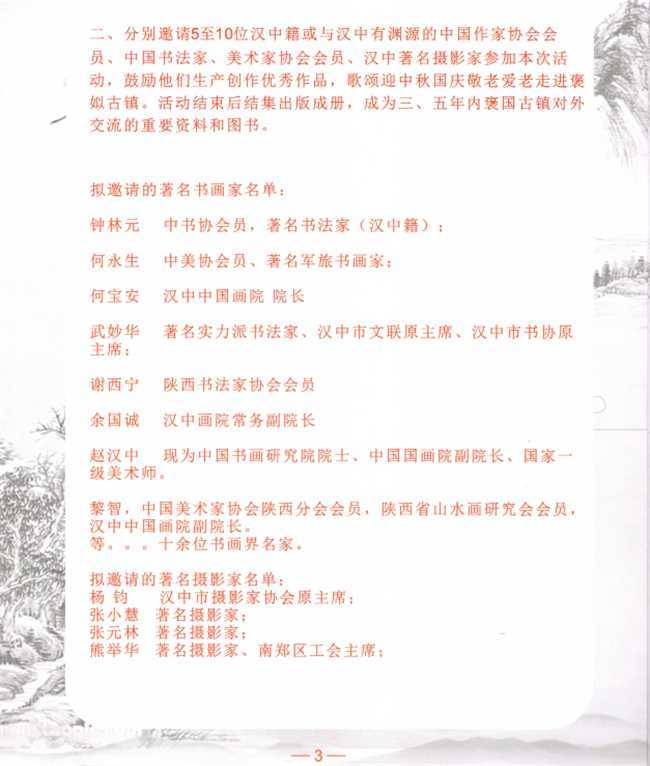 二、分别邀请5至10位汉中籍或与汉中有渊源的中国作家协会会
员、中国书法家、美术家协会会员、汉中著名摄影家参加本次活
动，鼓励他们生产创作优秀作品，歌颂迎中秋国庆敬老爱老走进褒
姒古镇。活动结束后结集出版成册，成为三、五年内褒国古镇对外
交流的重要资料和图书。
拟邀请的著名书画家名单：
钟林元 中书协会员，著名书法家（汉中籍）；
何永生 中美协会员、著名军旅书画家；
何宝安 汉中中国画院 院长
武妙华 著名实力派书法家、汉中市文联原主席、汉中市书协原
主席；
谢西宁 陕西书法家协会会员
余国诚 汉中画院常务副院长
赵汉中 现为中国书画研究院院士、中国国画院副院长、国家一
级美术师。
黎智，中国美术家协会陕西分会会员，陕西省山水画研究会会员，
汉中中国画院副院长。
等。。。十余位书画界名家。
拟邀请的著名摄影家名单：
杨 钧 汉中市摄影家协会原主席；
张小慧 著名摄影家；
张元林 著名摄影家；
熊举华 著名摄影家、南郑区工会主席；
—3—